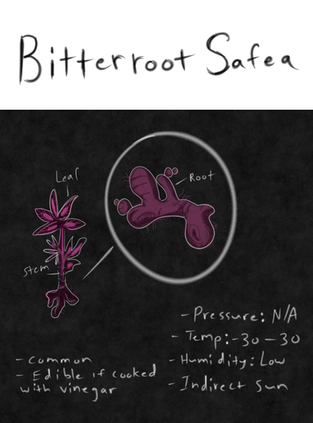 Bitterroot Safea
Leaf
Root
Stem
- Pressure: N/A
- Temp: -30 - 30
- Humidity: Low
- Indirect Sun
- Common
- Edible if cooked
with vinegar